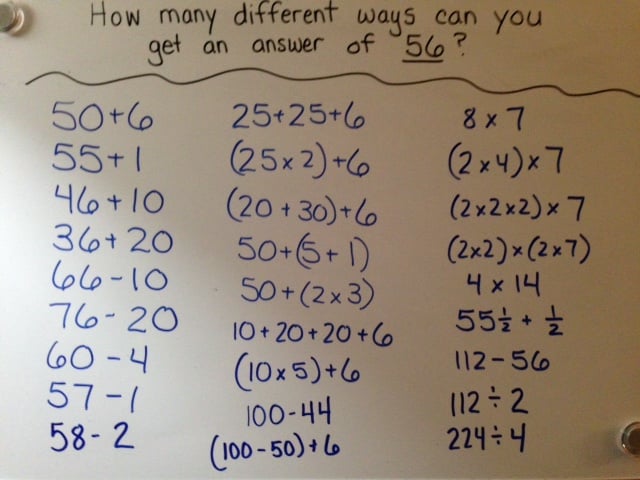 How many different ways can you
get an answer of 56?
50+6
55+1
46+10
36+20
66-10
76-20
60-4
57-1
58-2
25+25+6
(25x2)+6
(20+30)+6
50+(5+1)
50+(2x3)
10+20+20+6
(10x5)+6
100-44
(100-50)+6
8x7
(2x4)x7
(2x2x2)x7
(2x2)x(2x7)
4x14
55½+½
112-56
112÷2
224÷4